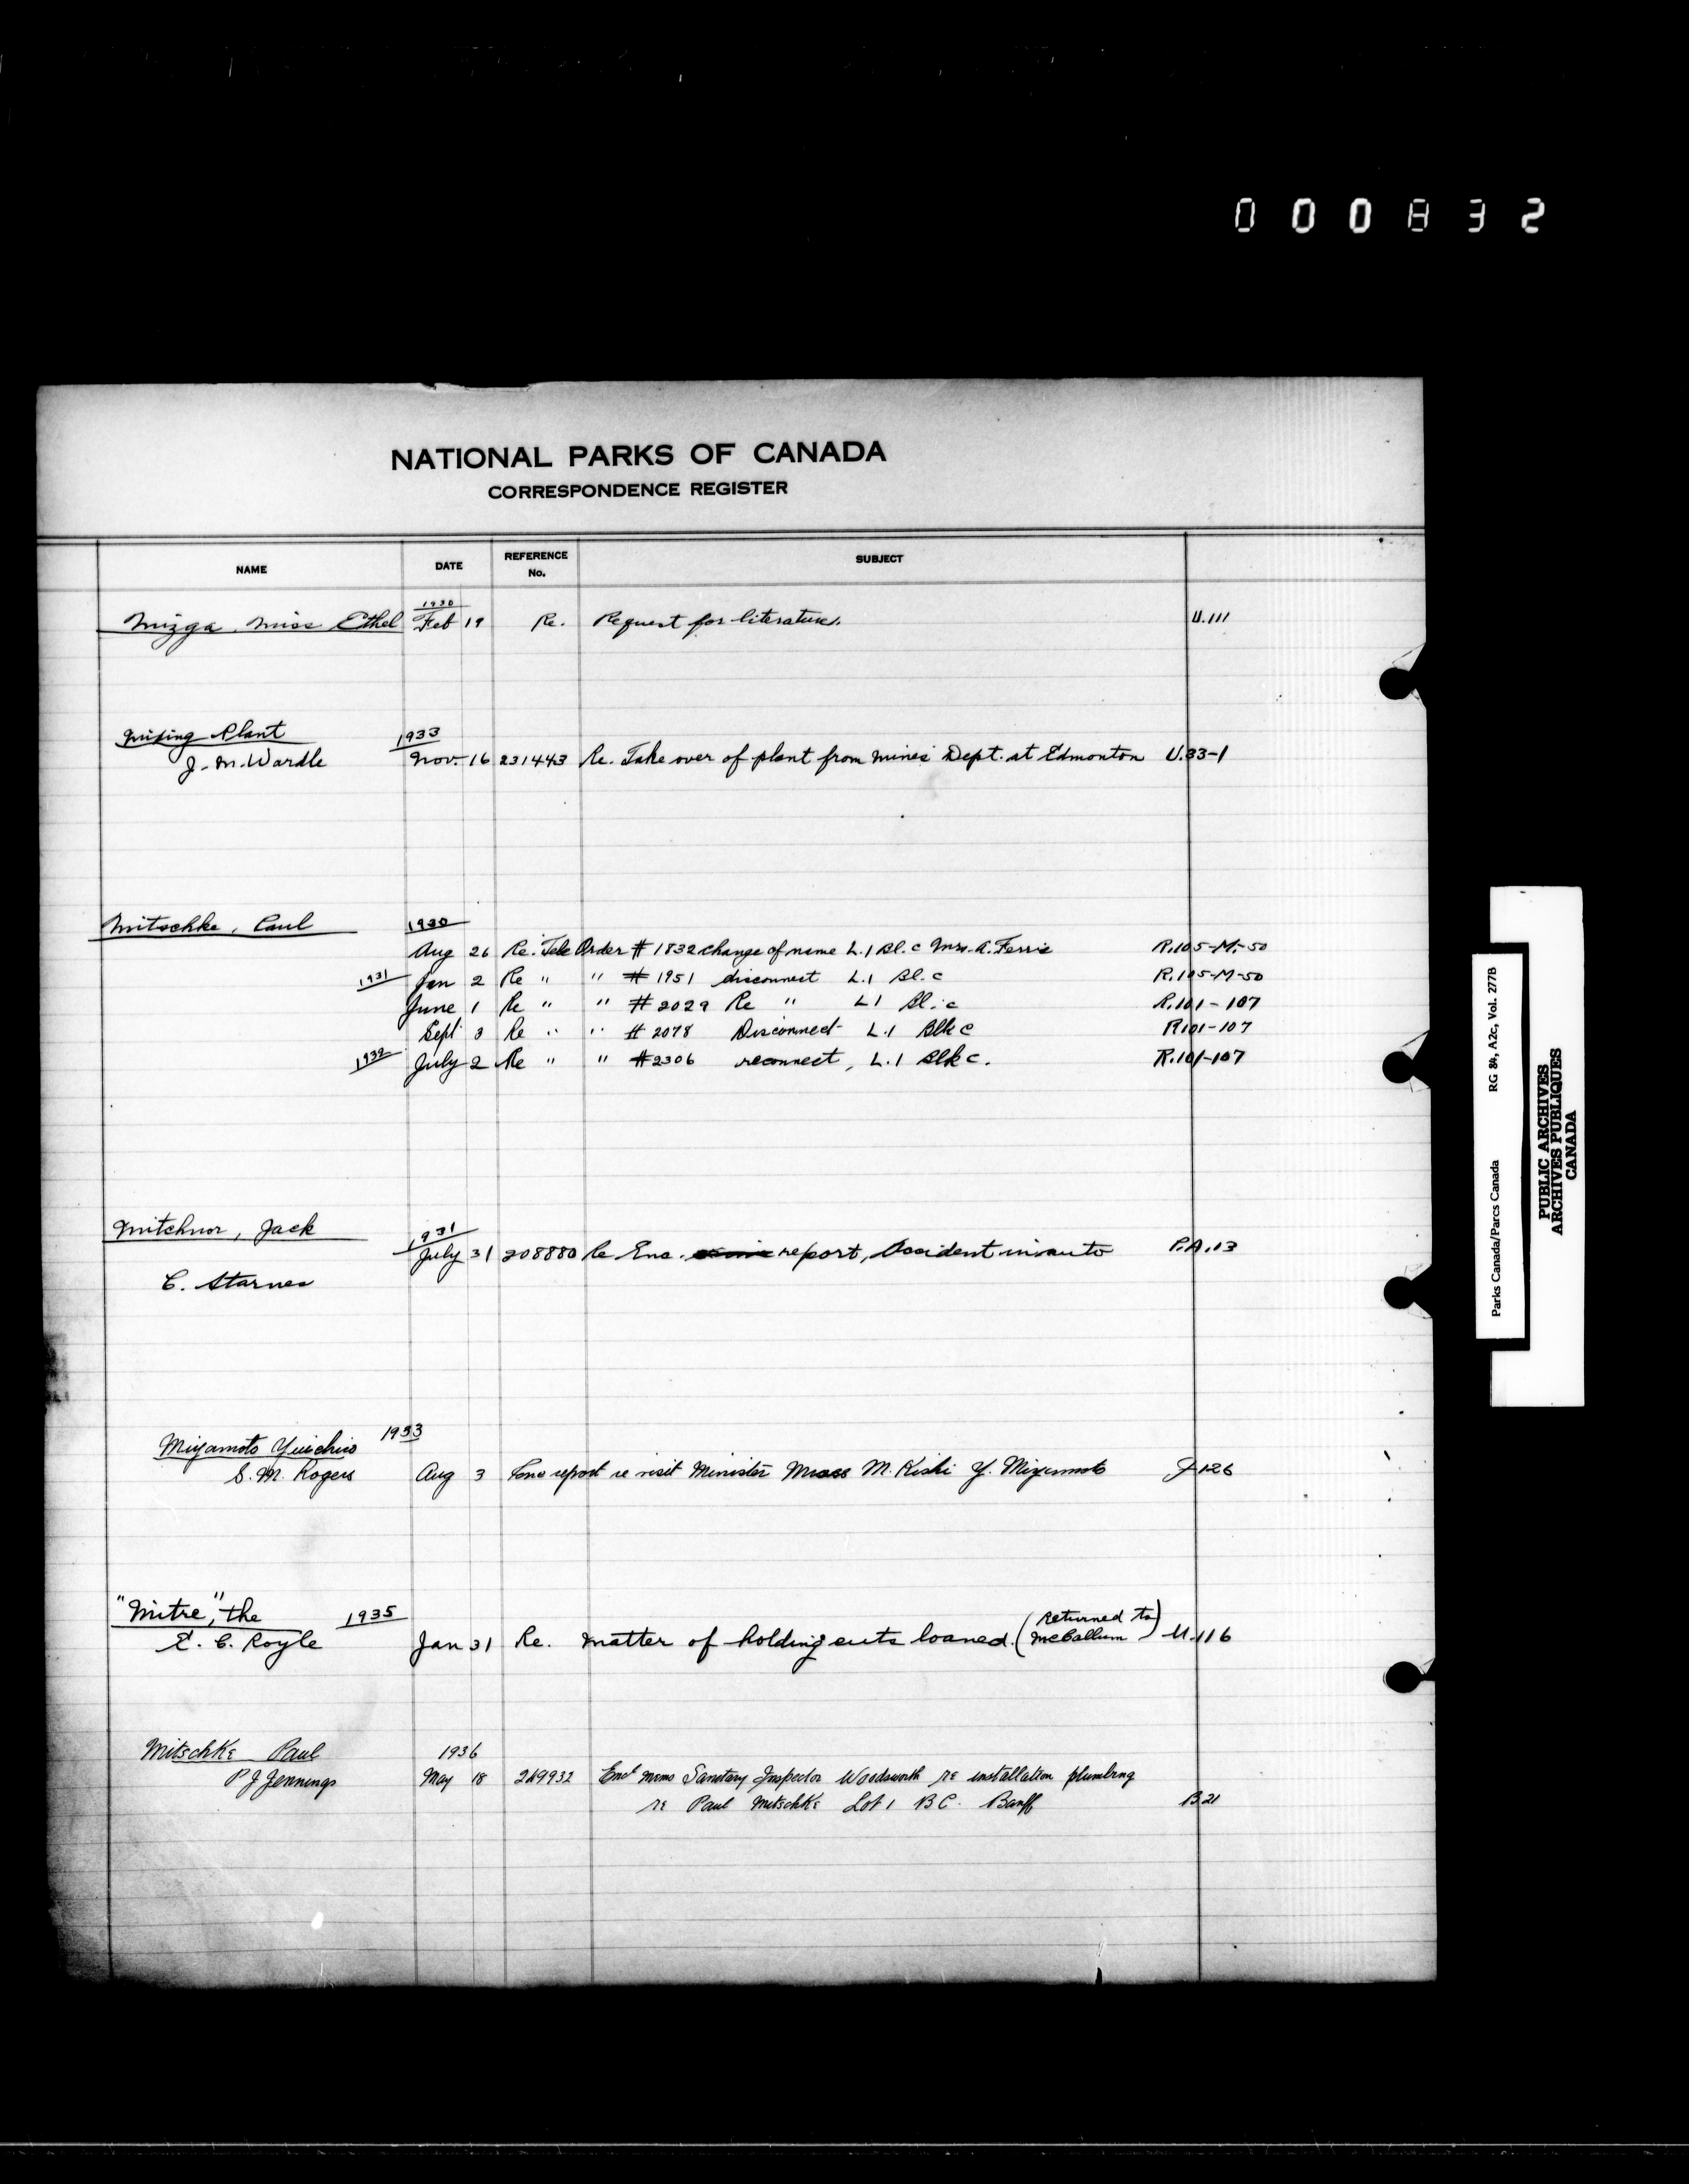 000832
NATIONAL PARKS OF CANADA
CORRESPONDENCE REGISTER
NAME DATE REFERENCE No. SUBJECT
1930
Mizga, Miss Ethel Feb 19 Re. Request for literature. U.111
Mixing Plant 1933
J. M. Wardle Nov. 16 231443 Re. Take over of plant from Mines Dept. at Edmonton U.33-1
Mitschke, Paul 1930
Aug 26 Re. Tele Order # 1832 change of name L.1 Bl. C Mrs. A. Ferris R.105-M-50
1931 Jan 2 Re " " # 1951 disconnect L.1 Bl. C R.105-M-50
June 1 Re " " # 2029 Re " L1 Bl. C R.101-107
Sept 3 Re " " # 2078 Disconnect L.1 Blk C R101-107
1932 July 2 Re " " # 2306 reconnect, L.1 Blk C. R.101-107
Mitchnor, Jack 1931
July 31 208880 Re Enc. report, Accident in auto P.A.13
C. Starnes
Miyamoto Yuichiro 1933
S. M. Rogers Aug 3 report re visit Minister M. Kishi Y. Miyamoto J-126
"Mitre", the 1935
E. C. Royle Jan 31 Re. Matter of holding cuts loaned. (Returned to McCallum) U.116
Mitschke Paul 1936
P J Jennings May 18 249932 Encl memo Sanitary Inspector Woodsworth re installation plumbing
re Paul Mitschke Lot 1 B C. Banff B21
Parks Canada/Parcs Canada RG 84, A2c, Vol. 277B
PUBLIC ARCHIVES
ARCHIVES PUBLIQUES
CANADA